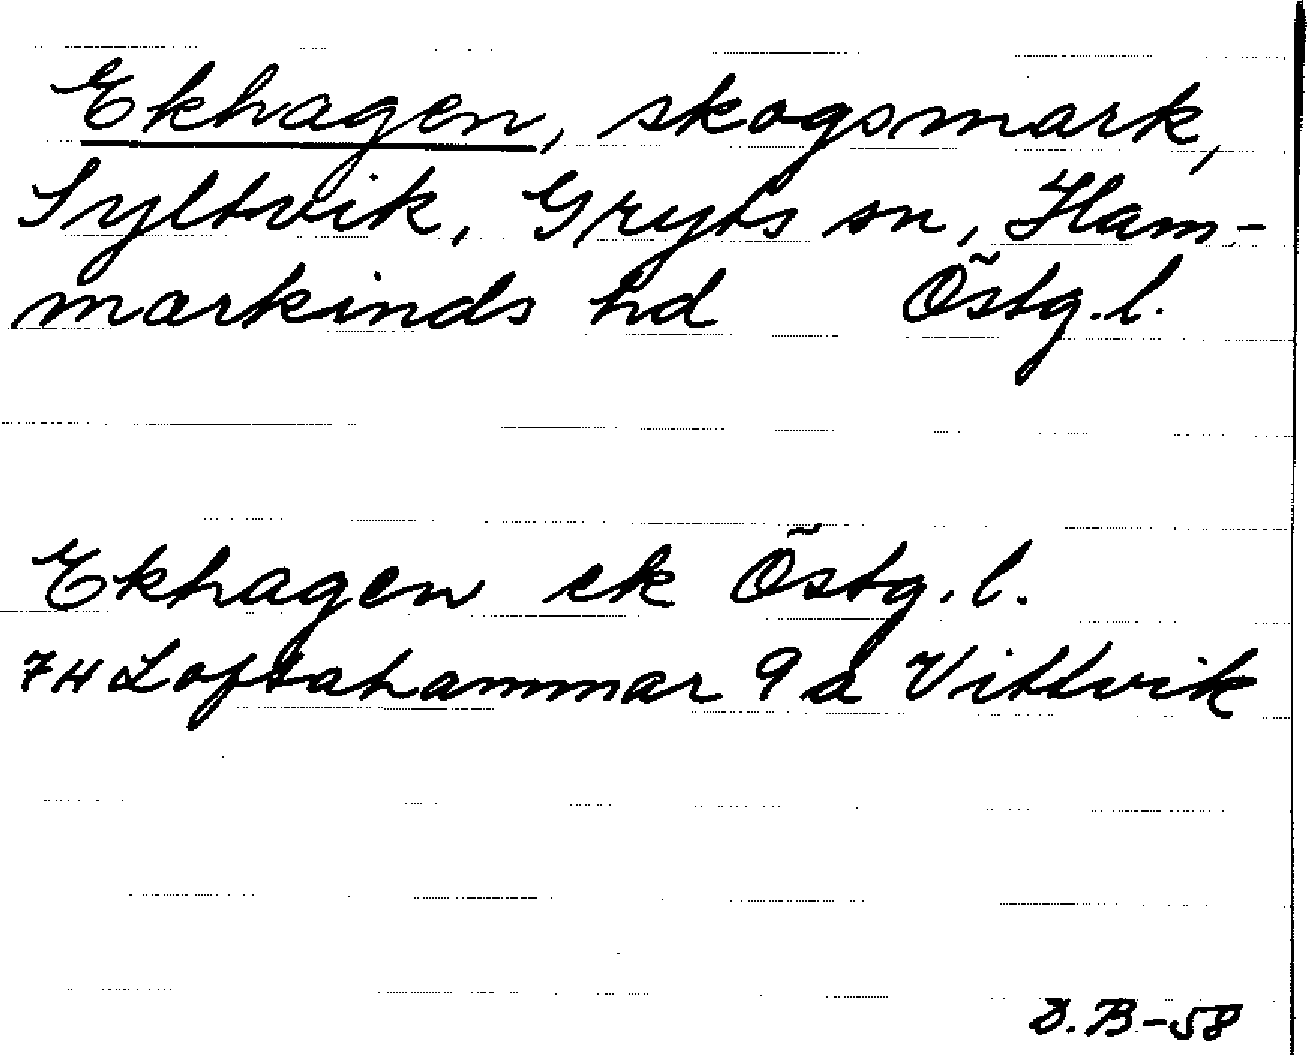 Ekhagen, skogsmark,
Syltvik, Gryts sn, Ham-
markinds hd Östg.l.
Ekhagen ek Östg.l.
7H Loftahammar 9a Vittvik
D.B-58